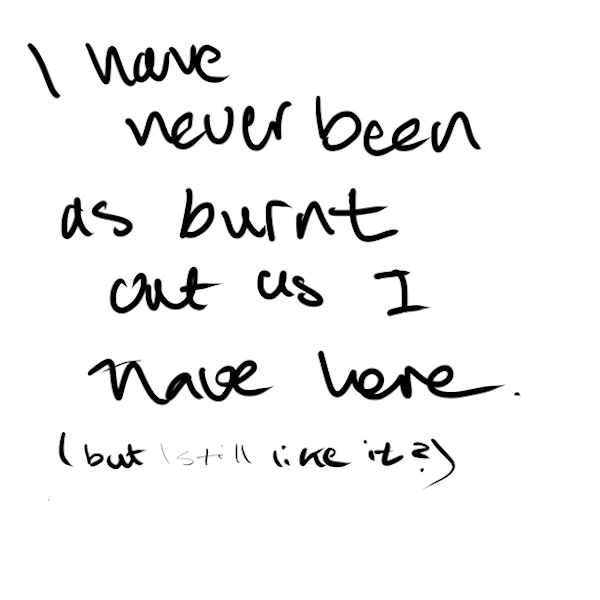 I have
never been
as burnt
out as I
have here.
(but I still like it?)